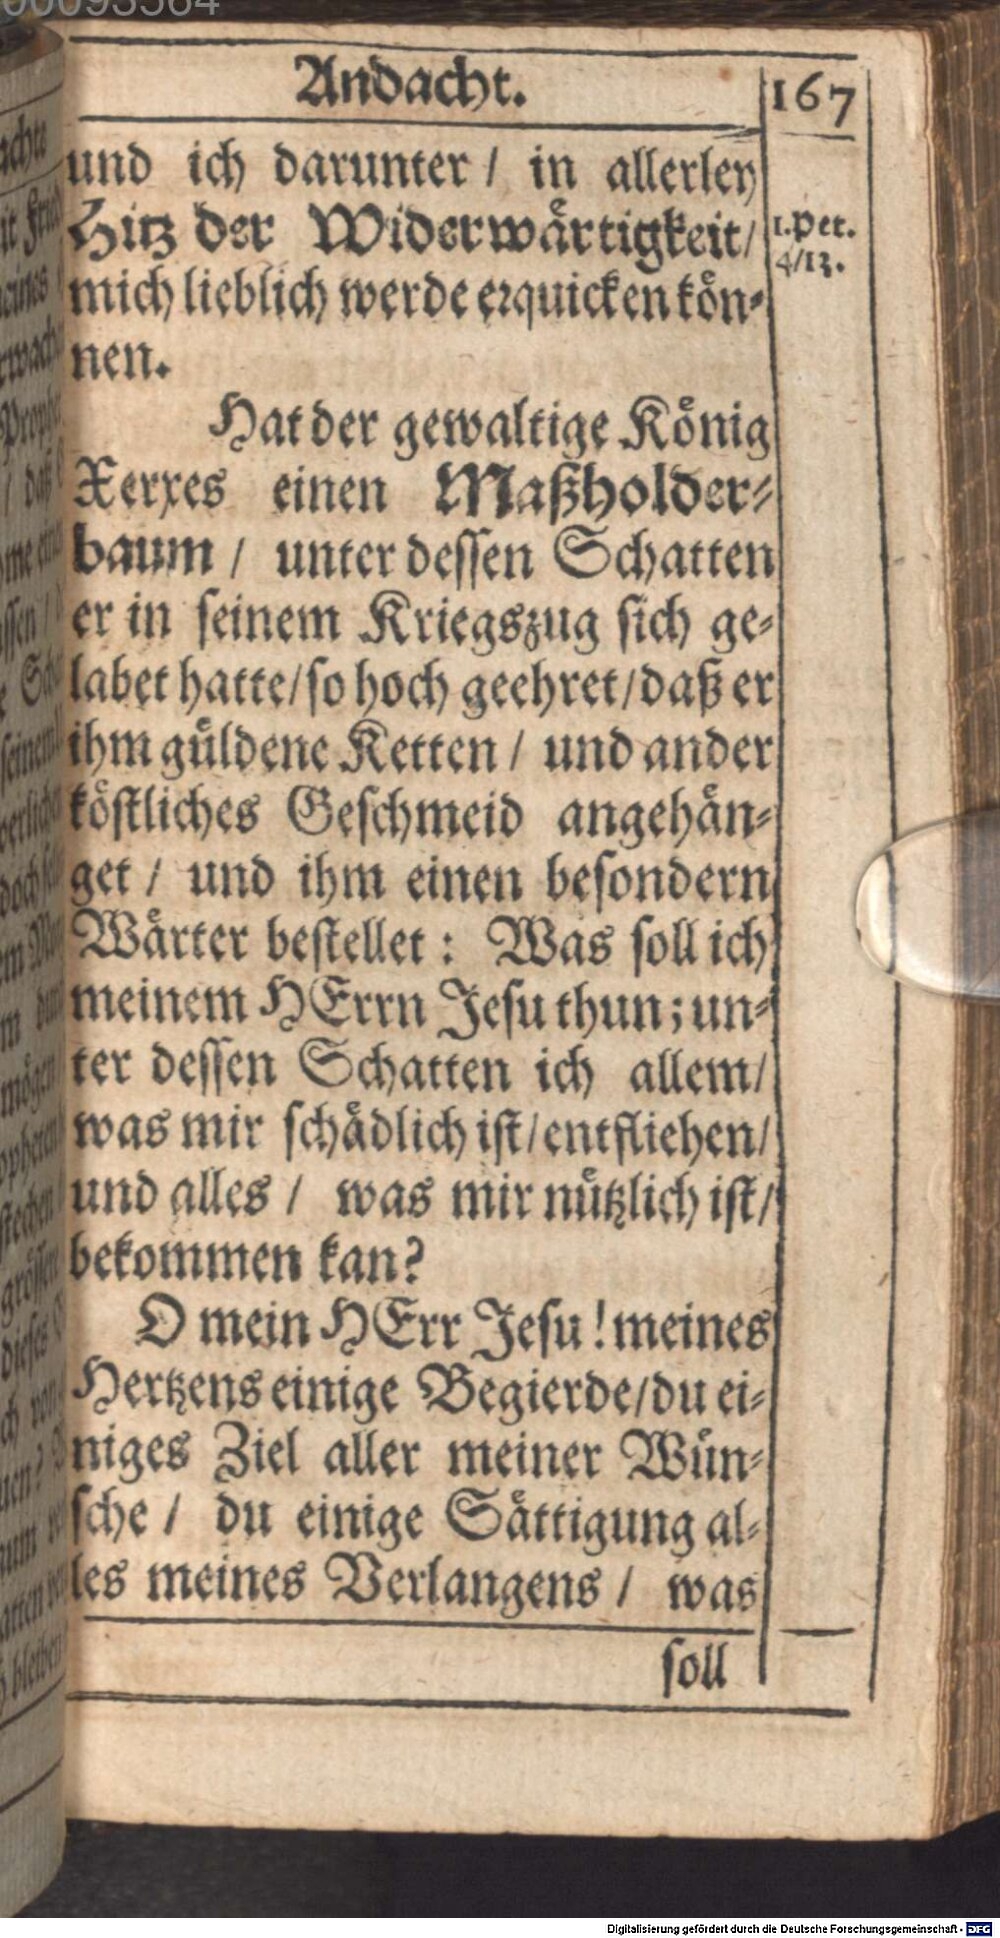 Andacht.
167
und ich darunter / in allerley
Hitz der Widerwärtigkeit /
1. Pet.
4/12.
mich lieblich werde erquicken kön⸗
nen.
Hat der gewaltige König
Xerxes einen Maßholder⸗
baum / unter dessen Schatten
er in seinem Kriegszug sich ge⸗
labet hatte / so hoch geehret / daß er
ihm güldene Ketten / und ander
köstliches Geschmeid angehän⸗
get / und ihm einen besondern
Wärter bestellet : Was soll ich
meinem HErrn Jesu thun ; un⸗
ter dessen Schatten ich allem /
was mir schädlich ist / entfliehen /
und alles / was mir nützlich ist /
bekommen kan?
O mein HErr Jesu ! meines
Hertzens einige Begierde / du ei⸗
niges Ziel aller meiner Wün⸗
sche / du einige Sättigung al⸗
les meines Verlangens / was
soll
Digitalisierung gefördert durch die Deutsche Forschungsgemeinschaft - DFG